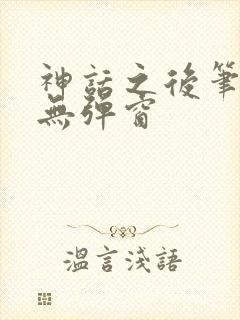 神話之後筆
無彈窗
溫言淺語